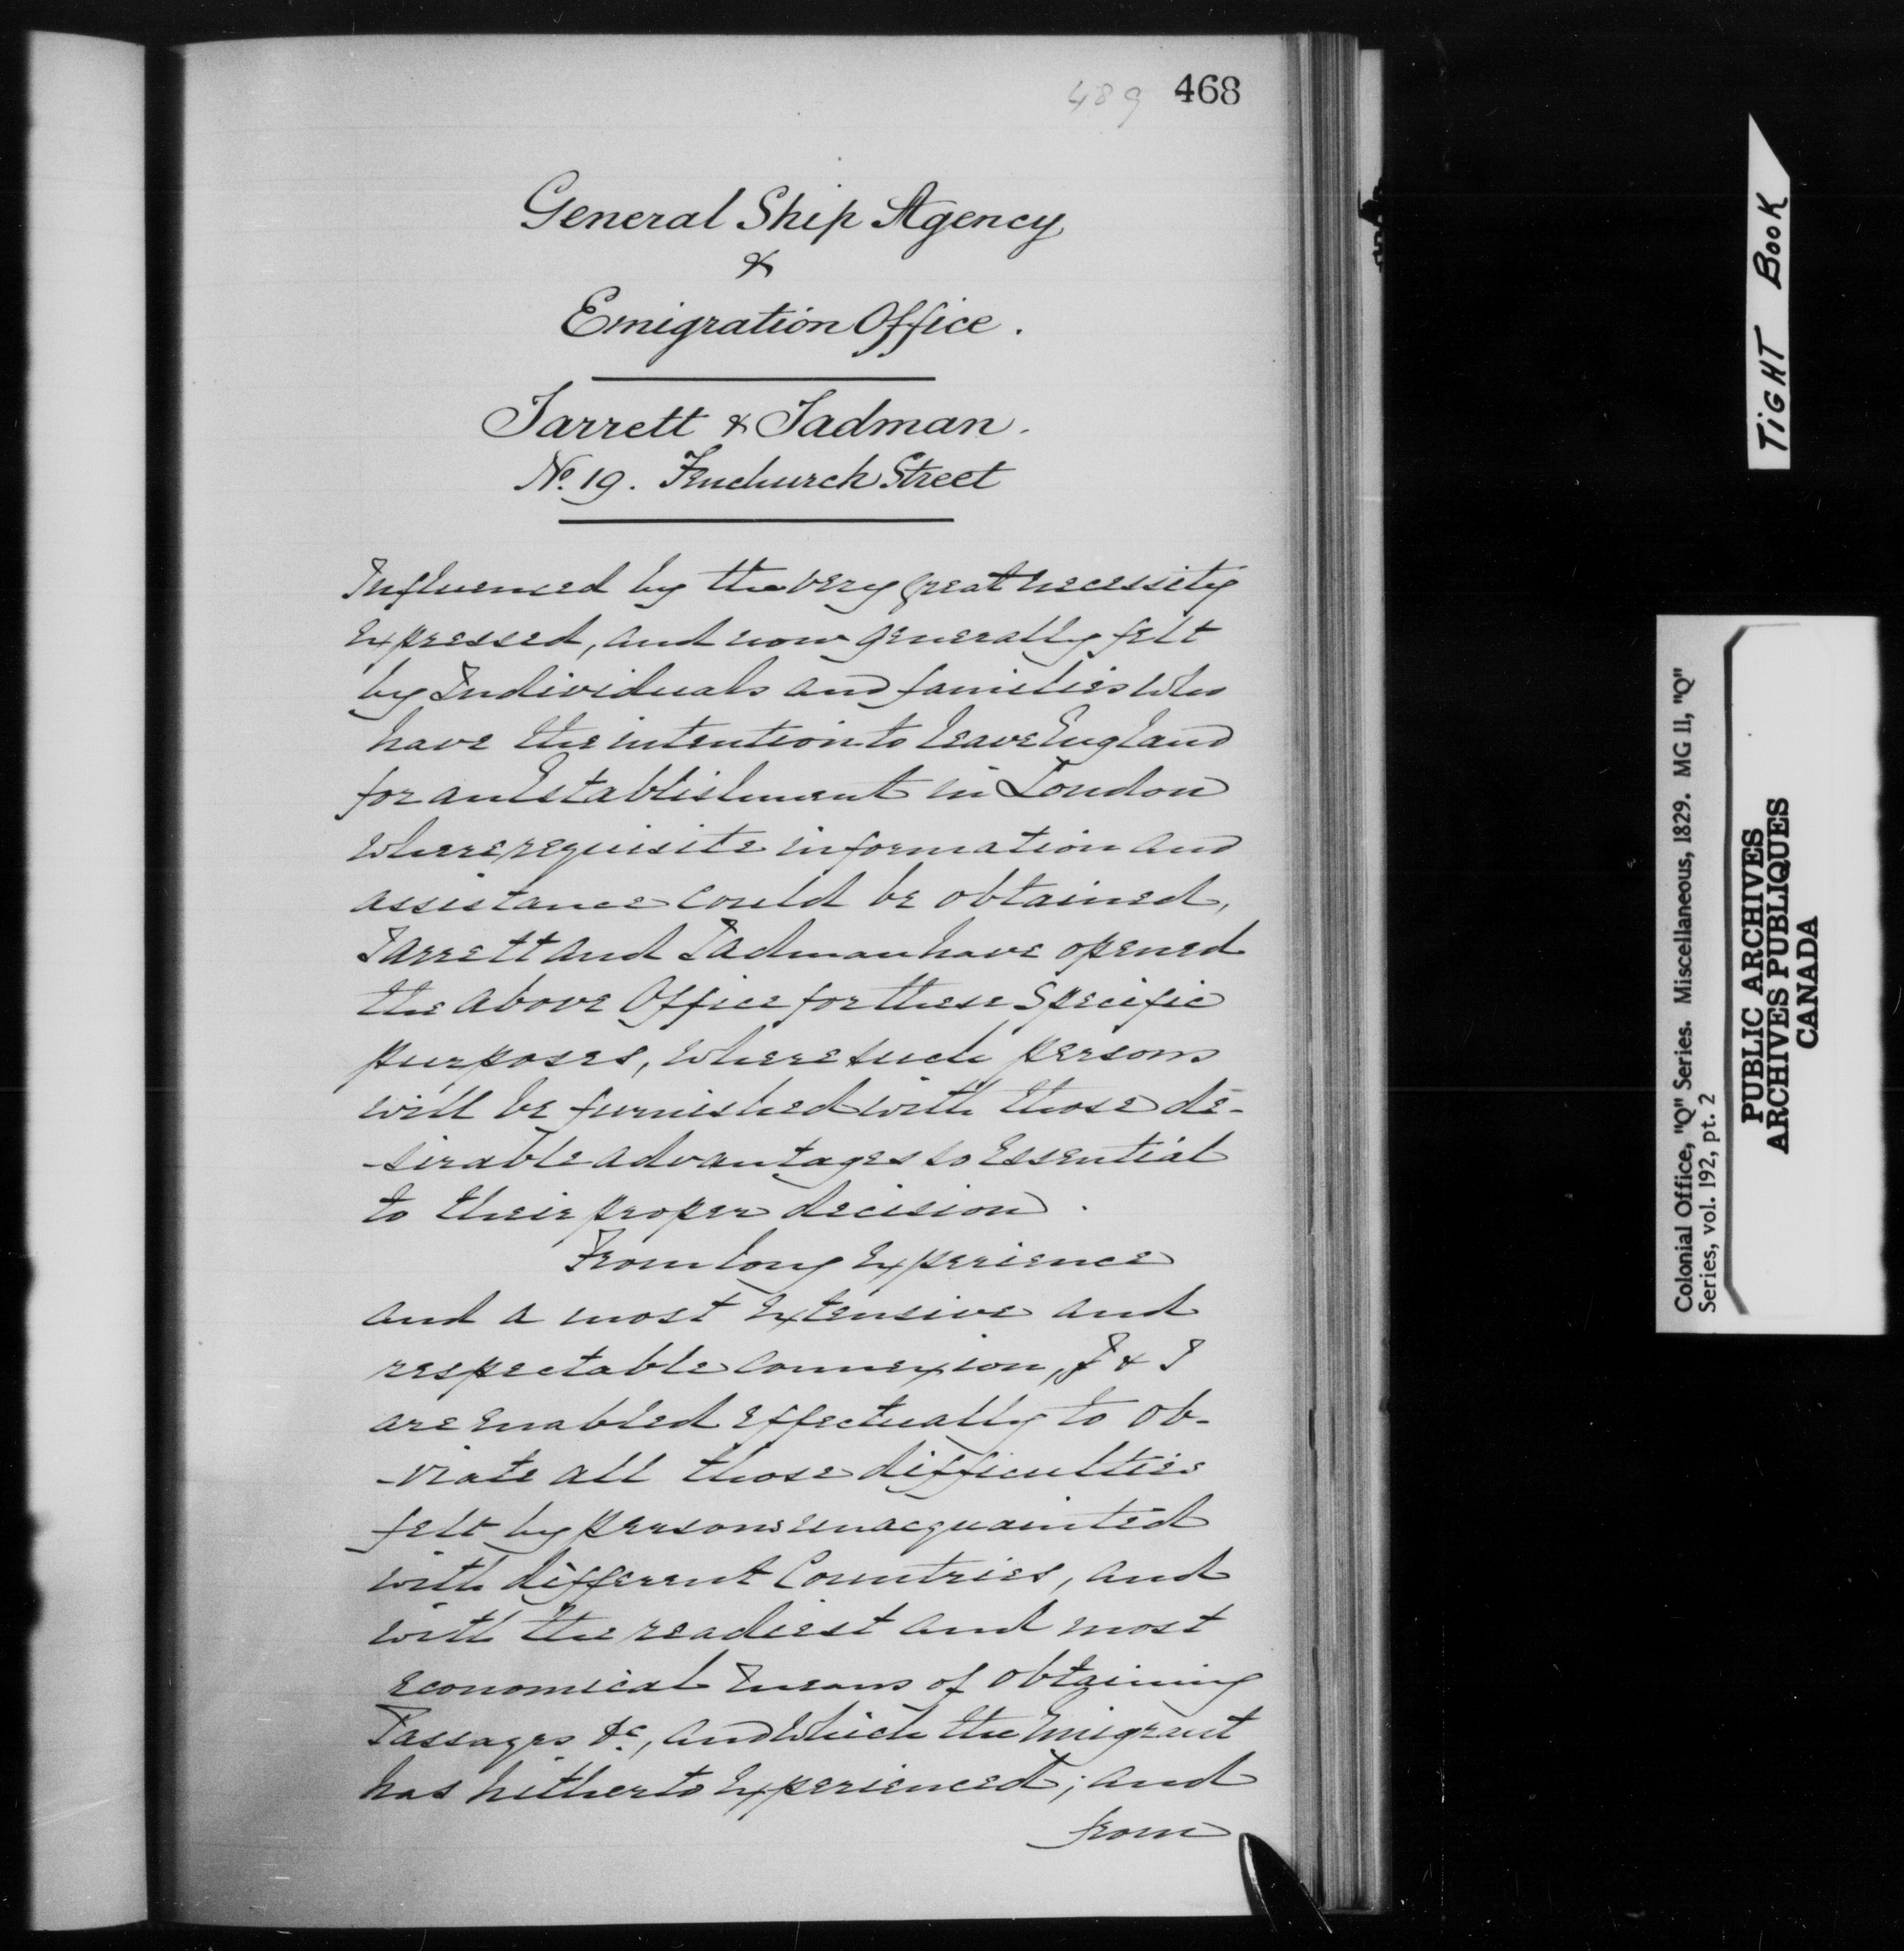 489 468
General Ship Agency
&
Emigration Office.
Tarrett & Tadman.
No. 19. Fenchurch Street
Influenced by the very great necessity
expressed, and now generally felt
by Individuals and families who
have the intention to leave England
for an Establishment in London
where requisite information and
assistance could be obtained,
Tarrett and Tadman have opened
the above Office for these Specific
purposes, where such persons
will be furnished with those de-
-sirable advantages so Essential
to their proper decision.
From long experience
and a most extensive and
respectable connexion, T & T
are enabled effectually to ob-
-viate all those difficulties
felt by persons unacquainted
with different Countries, and
with the readiest and most
economical means of obtaining
Passages &c, and which the Emigrant
has hitherto experienced; and
from
TIGHT BOOK
Colonial Office, "Q" Series. Miscellaneous, 1829. MG 11, "Q"
Series, vol. 192, pt. 2
PUBLIC ARCHIVES
ARCHIVES PUBLIQUES
CANADA